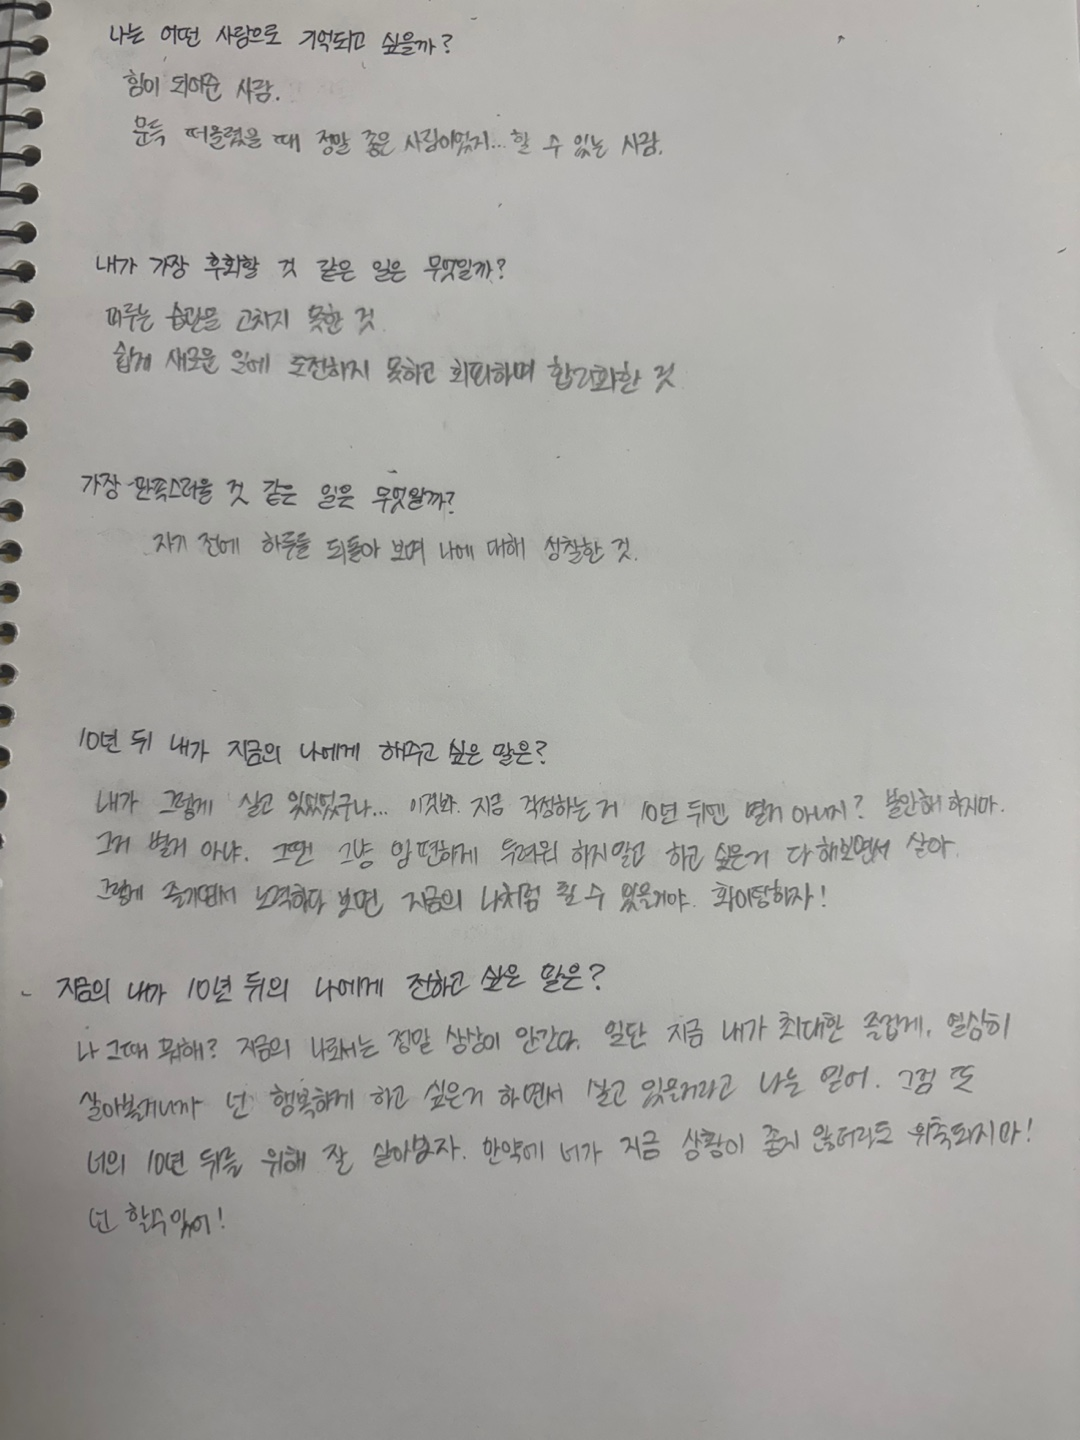 나는 어떤 사람으로 기억되고 싶을까?
힘이 되어준 사람.
문득 떠올렸을 때 정말 좋은 사람이었지... 할 수 있는 사람.
내가 가장 후회할 것 같은 일은 무엇일까?
미루는 습관을 고치지 못한 것
쉽게 새로운 일에 도전하지 못하고 회피하며 합리화한 것
가장 만족스러울 것 같은 일은 무엇일까?
자기 전에 하루를 되돌아 보며 나에 대해 성찰한 것.
10년 뒤 내가 지금의 나에게 해주고 싶은 말은?
내가 그렇게 살고 있었었구나... 이것봐. 지금 걱정하는 거 10년 뒤엔 별거 아니지? 불안해 하지마.
그거 별거 아냐. 그땐 그냥 맘 편하게 두려워 하지말고 하고 싶은거 다 해보면서 살아.
그렇게 즐기면서 노력하다 보면 지금의 나처럼 될 수 있을거야. 화이팅하자!
지금의 내가 10년 뒤의 나에게 전하고 싶은 말은?
나 그때 뭐해? 지금의 나로서는 정말 상상이 안간다. 일단 지금 내가 최대한 즐겁게, 열심히
살아볼거니까 넌 행복하게 하고 싶은거 하면서 살고 있을거라고 나는 믿어. 그럼 또
너의 10년 뒤를 위해 잘 살아보자. 만약에 너가 지금 상황이 좋지 않더라도 위축되지마!
넌 할수있어!